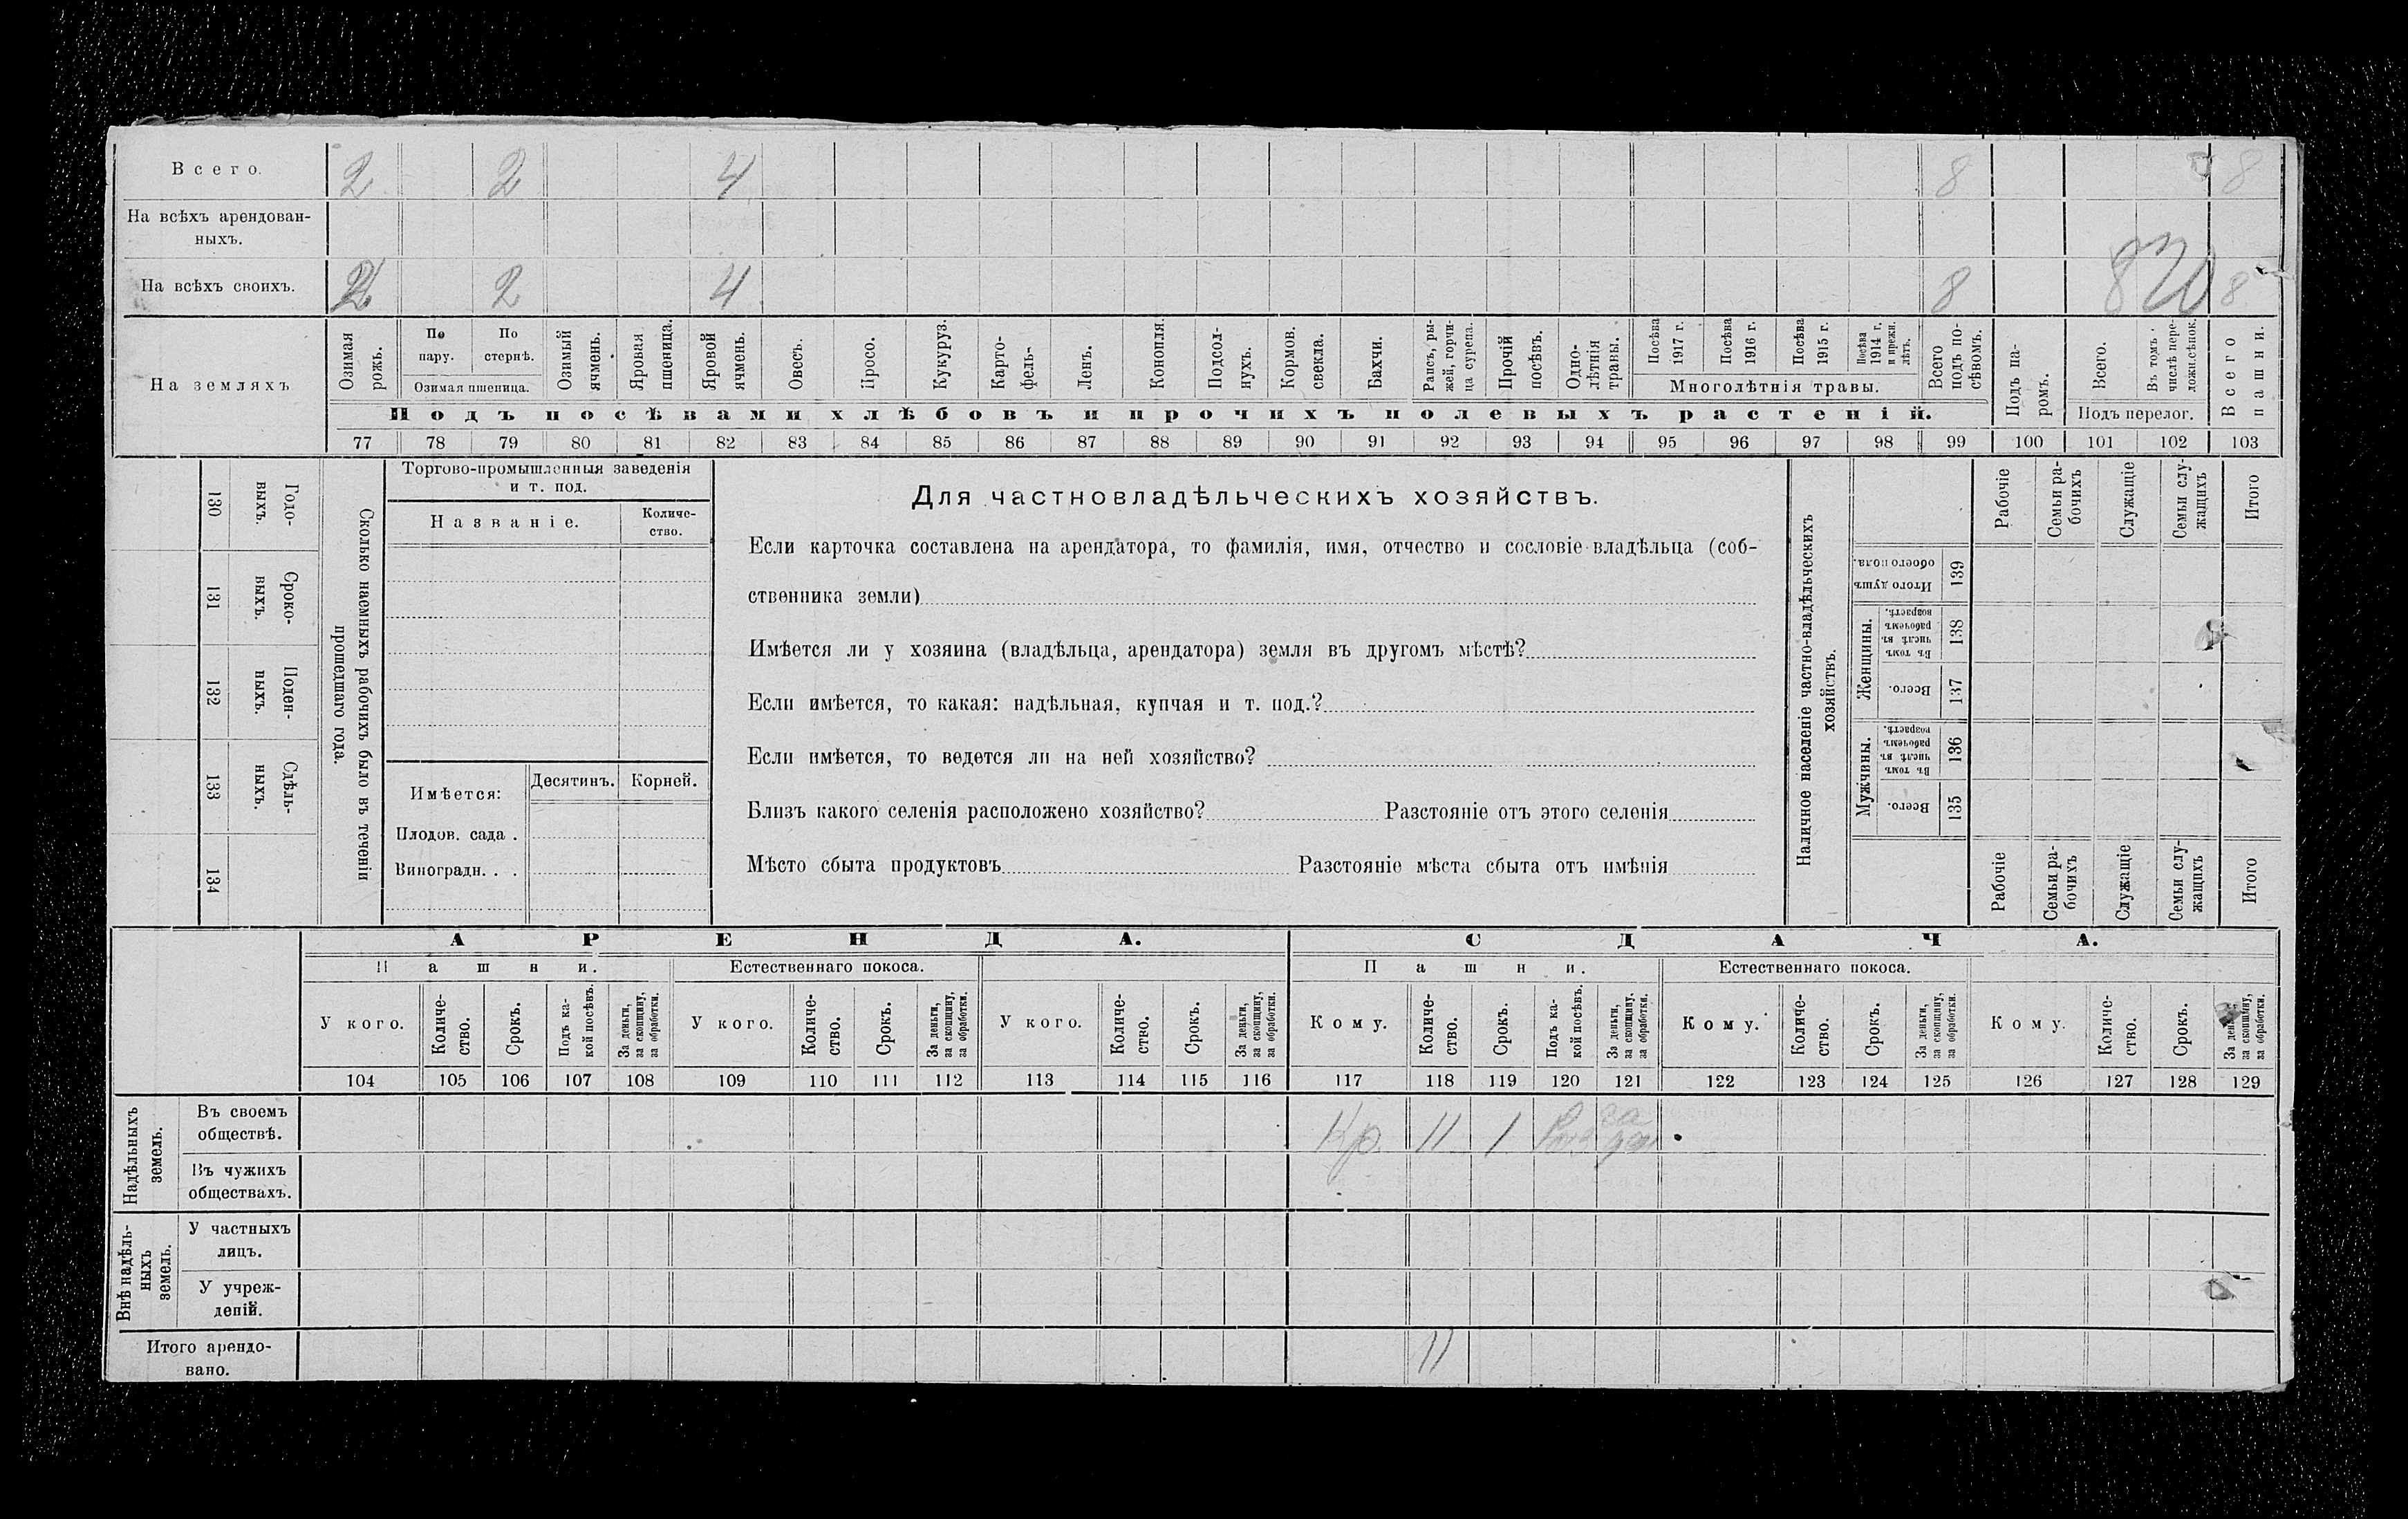 Всего. 2 2 4 8 8
На всѣхъ арендован-
ныхъ.
На всѣхъ своихъ. 2 2 4 8 820 8
На земляхъ
Озимая рожь.
По пару.
По стернѣ.
Озимая пшеница.
Озимый ячмень.
Яровая пшеница.
Яровой ячмень.
Овесъ.
Просо.
Кукуруз.
Карто-
фель.
Ленъ.
Конопля.
Подсол-
нухъ.
Кормов. свекла.
Бахчи.
Рапсъ, ры-
жей, горчи-
ца сурепа.
Прочій посѣвъ.
Одно-
лѣтнія травы.
Посѣва 1917 г.
Посѣва 1916 г.
Посѣва 1915 г.
Посѣва 1914 г. и прежн. лѣтъ.
Многолѣтнія травы.
Всего подъ по-
сѣвомъ.
Подъ па-
ромъ.
Всего.
Въ томъ числѣ пере-
ложн.сѣнок.
Подъ перелог.
Всего пашни.
Подъ посѣвами хлѣбовъ и прочихъ полевыхъ растеній.
77 78 79 80 81 82 83 84 85 86 87 88 89 90 91 92 93 94 95 96 97 98 99 100 101 102 103
130 Годо-
выхъ.
131 Сроко-
выхъ.
132 Поден-
ныхъ.
133 Сдѣль-
ныхъ.
134
Сколько наемныхъ рабочихъ было въ теченіи
прошедшаго года.
Торгово-промышленныя заведенія
и т. под.
Названіе.
Количе-
ство.
Имѣется:
Десятинъ.
Корней.
Плодов. сада .
Виноградн. . .
Для частновладѣльческихъ хозяйствъ.
Если карточка составлена на арендатора, то фамилія, имя, отчество и сословіе владѣльца (соб-
ственника земли)
Имѣется ли у хозяина (владѣльца, арендатора) земля въ другомъ мѣстѣ?
Если имѣется, то какая: надѣльная, купчая и т. под.?
Если имѣется, то ведется ли на ней хозяйство?
Близъ какого селенія расположено хозяйство? Разстояніе отъ этого селенія
Мѣсто сбыта продуктовъ Разстояніе мѣста сбыта отъ имѣнія
Наличное населеніе частно-владѣльческихъ
хозяйствъ.
Рабочіе
Семьи ра-
бочихъ
Служащіе
Семьи слу-
жащихъ
Итого
Итого душъ обоего пола. 139
Женщины.
Въ томъ числѣ въ рабочемъ возрастѣ. 138
Всего. 137
Мужчины.
Въ томъ числѣ въ рабочемъ возрастѣ. 136
Всего. 135
Рабочіе
Семьи ра-
бочихъ
Служащіе
Семьи слу-
жащихъ
Итого
АРЕНДА. СДАЧА.
Пашни. Естественнаго покоса. Пашни. Естественнаго покоса.
У кого.
Количе-
ство.
Срокъ.
Подъ ка-
кой посѣвъ.
За деньги, за скопщину, за обработки.
У кого.
Количе-
ство.
Срокъ.
За деньги, за скопщину, за обработки.
У кого.
Количе-
ство.
Срокъ.
За деньги, за скопщину, за обработки.
Кому.
Количе-
ство.
Срокъ.
Подъ ка-
кой посѣвъ.
За деньги, за скопщину, за обработки.
Кому.
Количе-
ство.
Срокъ.
За деньги, за скопщину, за обработки.
Кому.
Количе-
ство.
Срокъ.
За деньги, за скопщину, за обработки.
104 105 106 107 108 109 110 111 112 113 114 115 116 117 118 119 120 121 122 123 124 125 126 127 128 129
Надѣльныхъ
земель.
Въ своемъ
обществѣ. Кр. 11 1 за
Въ чужихъ
обществахъ.
Внѣ надѣль-
ныхъ
земель.
У частныхъ
лицъ.
У учреж-
деній.
Итого арендо-
вано. 11